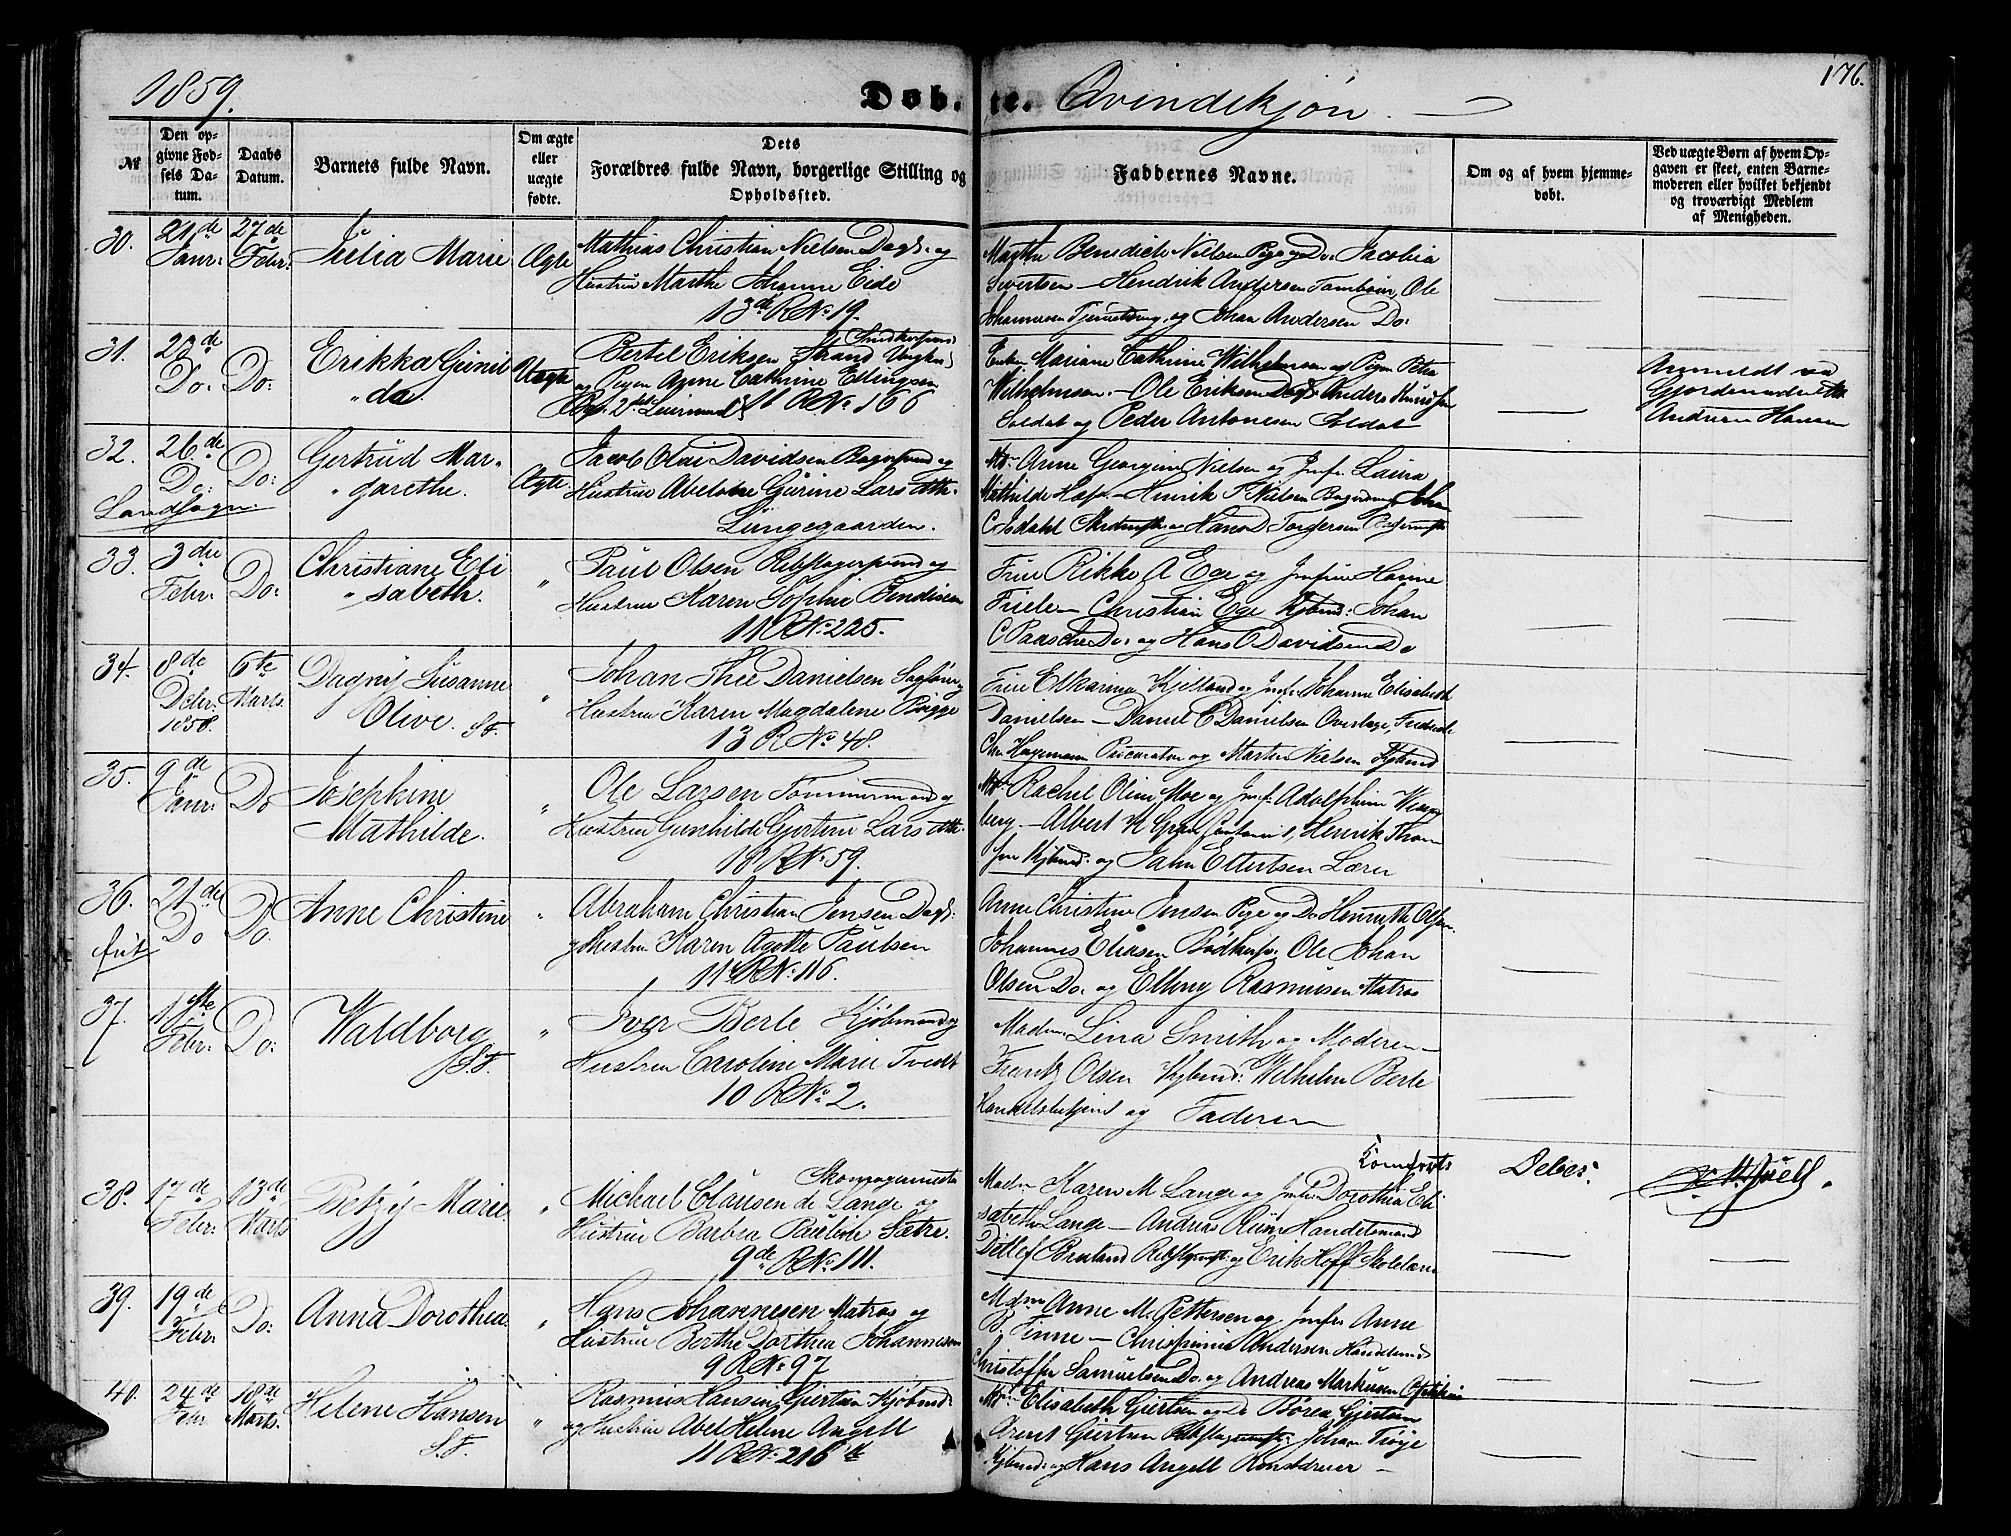 1859.
Døbte. Qvindekjøn.
176.
№
Den opgivne Fødsels Datum.
Daabs Datum.
Barnets fulde Navn.
Om ægte eller uægte fødte.
Dets Forældres fulde Navn, borgerlige Stilling og Opholdssted.
Faddernes Navne.
Om og af hvem hjemmedøbt.
Ved uægte Børn af hvem Opgaven er skeet, enten Barnemoderen eller hvilket bekjendt og troværdigt Medlem af Menigheden.
30. 21de Janr: 27de Febr: Julia Marie Ægte
Mathias Christian Nielsen Dagk: og
Hustru Marthe Johanne Eide
13de R No 19.
Marthe Benedicte Nielsen Pige og Do: Jacobia
Sivertsen – Hendrik Andersen Tambour, Ole
Johannesen Tjenestdreng, og Johan Andersen Do:
31. 23de Do: Do: Erikka Gunil
"da. Uægte
Bertel Eriksen Strand Ungk:
og Pigen Anne Cathrine Ellingsen
11 R No 166
Enken Mariane Cathrine Wilhelmsen og Pigen Petra
Wilhelmsen. – Ole Eriksen Dagk: Anders Knudsen
Soldat og Peder Antonesen Soldat
Anmeldt va
Gjordemoder
Andrea Hansen
32. 26de Do: Do: Gertrud Mar-
"garethe. Ægte.
Landsogn.
Jacob Olai Davidsen Bagersvend og
Hustrue Abelone Gurine Larsdtr.
Lungegaarden.
Md: Anne Georgine Nielsen og Jmfr. Laura
Mathilde – Hinrik F Nielsen
Torgersen
33. 3die Febr: Do: Christiane Eli
"sabeth. "
Paul Olsen Rebslagersvend og
Hustrue Karen Sophie Bendixen
11 R No. 225.
Frue Rikke A Ege og Jmfrue Hanne
Friele – Christian Ege Kjbmd: Johan
C Paasche Do: og Hans C Davidsen Do
34. 8de Debr: 1858. 6te Marts Dagny Susanne
Olive. S.F. "
Johan Thee Danielsen Sagfører og
Hustrue Karen Magdalene Brigge
13 R No. 48.
Frue Elkarina Kjelland og Jmfr: Johanne Elisabeth
Danielsen – Daniel C Danielsen Overlæge, Frederik
Chr Hagemann Procurator og Martin Nielsen Kjbmd
35. 9de Janr: Do Josephine
Mathilde. "
Ole Larsen Tømmermand og
Hustrue Gunhilde Gjertine Larsdtr.
18 R No. 59.
Md: Rachel Oline Moe og Jmfr. Adolphine Wing
berg. – Albert H Gran, Henrik Thom
sen Kjbmd: og Jahn Ellertsen Lærer
36. 21de Do Do. Anne Christine "
Abraham Christian Jensen Dagk:
og Hustrue Karen Agethe Paulsen
11 R No. 116.
Anne Christine Jensen Pige og Do Henriette Olsen.
Johannes Eliasen Bødkersv: Ole Johan
Olsen Do: og Elling Rasmusen Matros
37. 11te Febr: Do: Waldborg
S.F. "
Iver Berle Kjøbmand og
Hustrue Caroline Marie Tvedt
10 R No. 2.
Madm: Lina Smith og Moderen –
Frantz Olsen Kjbmd: Wilhelm Berle
Handelsbetjent og Faderen
38. 17de Febr: 13de Marts Betzy Marie. "
Skomagermester
Michael Clausen de Lange og
Hustrue Barbra Pauline Sætre.
9de R No. 111.
Madm Karen M Lange og Jmfr: Dorothea Eli
sabeth Lange – Andreas Riim Handelsmand
Ditlef Bruland Rebslagermst: og Erik Hoff Skolelærer
Debes:
39. 19de Febr: Do: Anna Dorothea. "
Hans Johannesen Matros og
Hustrue Berthe Dorthea Johannesen
9 R No. 97
Mdm Anne M. Pettersen og Jmfr: Anne
B Finne – Andersen Handelsmd
Christoffer Samuelsen Do. og Andreas Markusen
40. 24de Febr 18de Marts. Helene Hansen
S.F. "
Rasmus Hansen Gjertsen Kjøbmd:
og Hustrue Abel Helene Angell
11 R No. 216 k
Md: Elisabeth Gjertsen og Do Børea Gjertsen
Arent Gjertsen Rebslagermst: Johan Troye
Kjbmd: og Hans Angell Konstdreier –